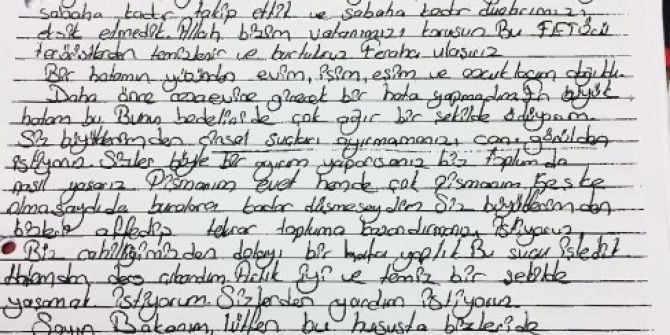 sabaha kadar takip ettik ve sabaha kadar dualarımızı
eksik etmedik. Allah bizim vatanımızı korusun Bu FETÖCÜ
teröristlerden temizlenir ve kurtuluruz feraha ulaşırız
Bir hatamın yüzünden evim, işim, eşim ve çocuklarım dağıldı.
Daha önce cezaevine girecek bir hata yapmadım En büyük
hatam bu Bunun bedelinide çok ağır bir şekilde ödüyorum.
Siz büyüklerimden cinsel suçları ayırmamanızı canı gönülden
istiyorum. Sizler böyle bir ayrım yaparsanız biz toplumda
nasıl yaşarız Pişmanım evet hemde çok pişmanım keşke
olmasaydıda buralara kadar düşmeseydim Siz büyüklerimden
bizleri affedip tekrar topluma kazandırmanızı istiyoruz
Biz cahilliğimizden dolayı bir hata yaptık Bu suçu işledik
Hatamdan ders çıkardım. Artık iyi ve temiz bir şekilde
yaşamak istiyorum. Sizlerden yardım istiyorum.
Sayın Bakanım, lütfen bu hususta bizlerinde